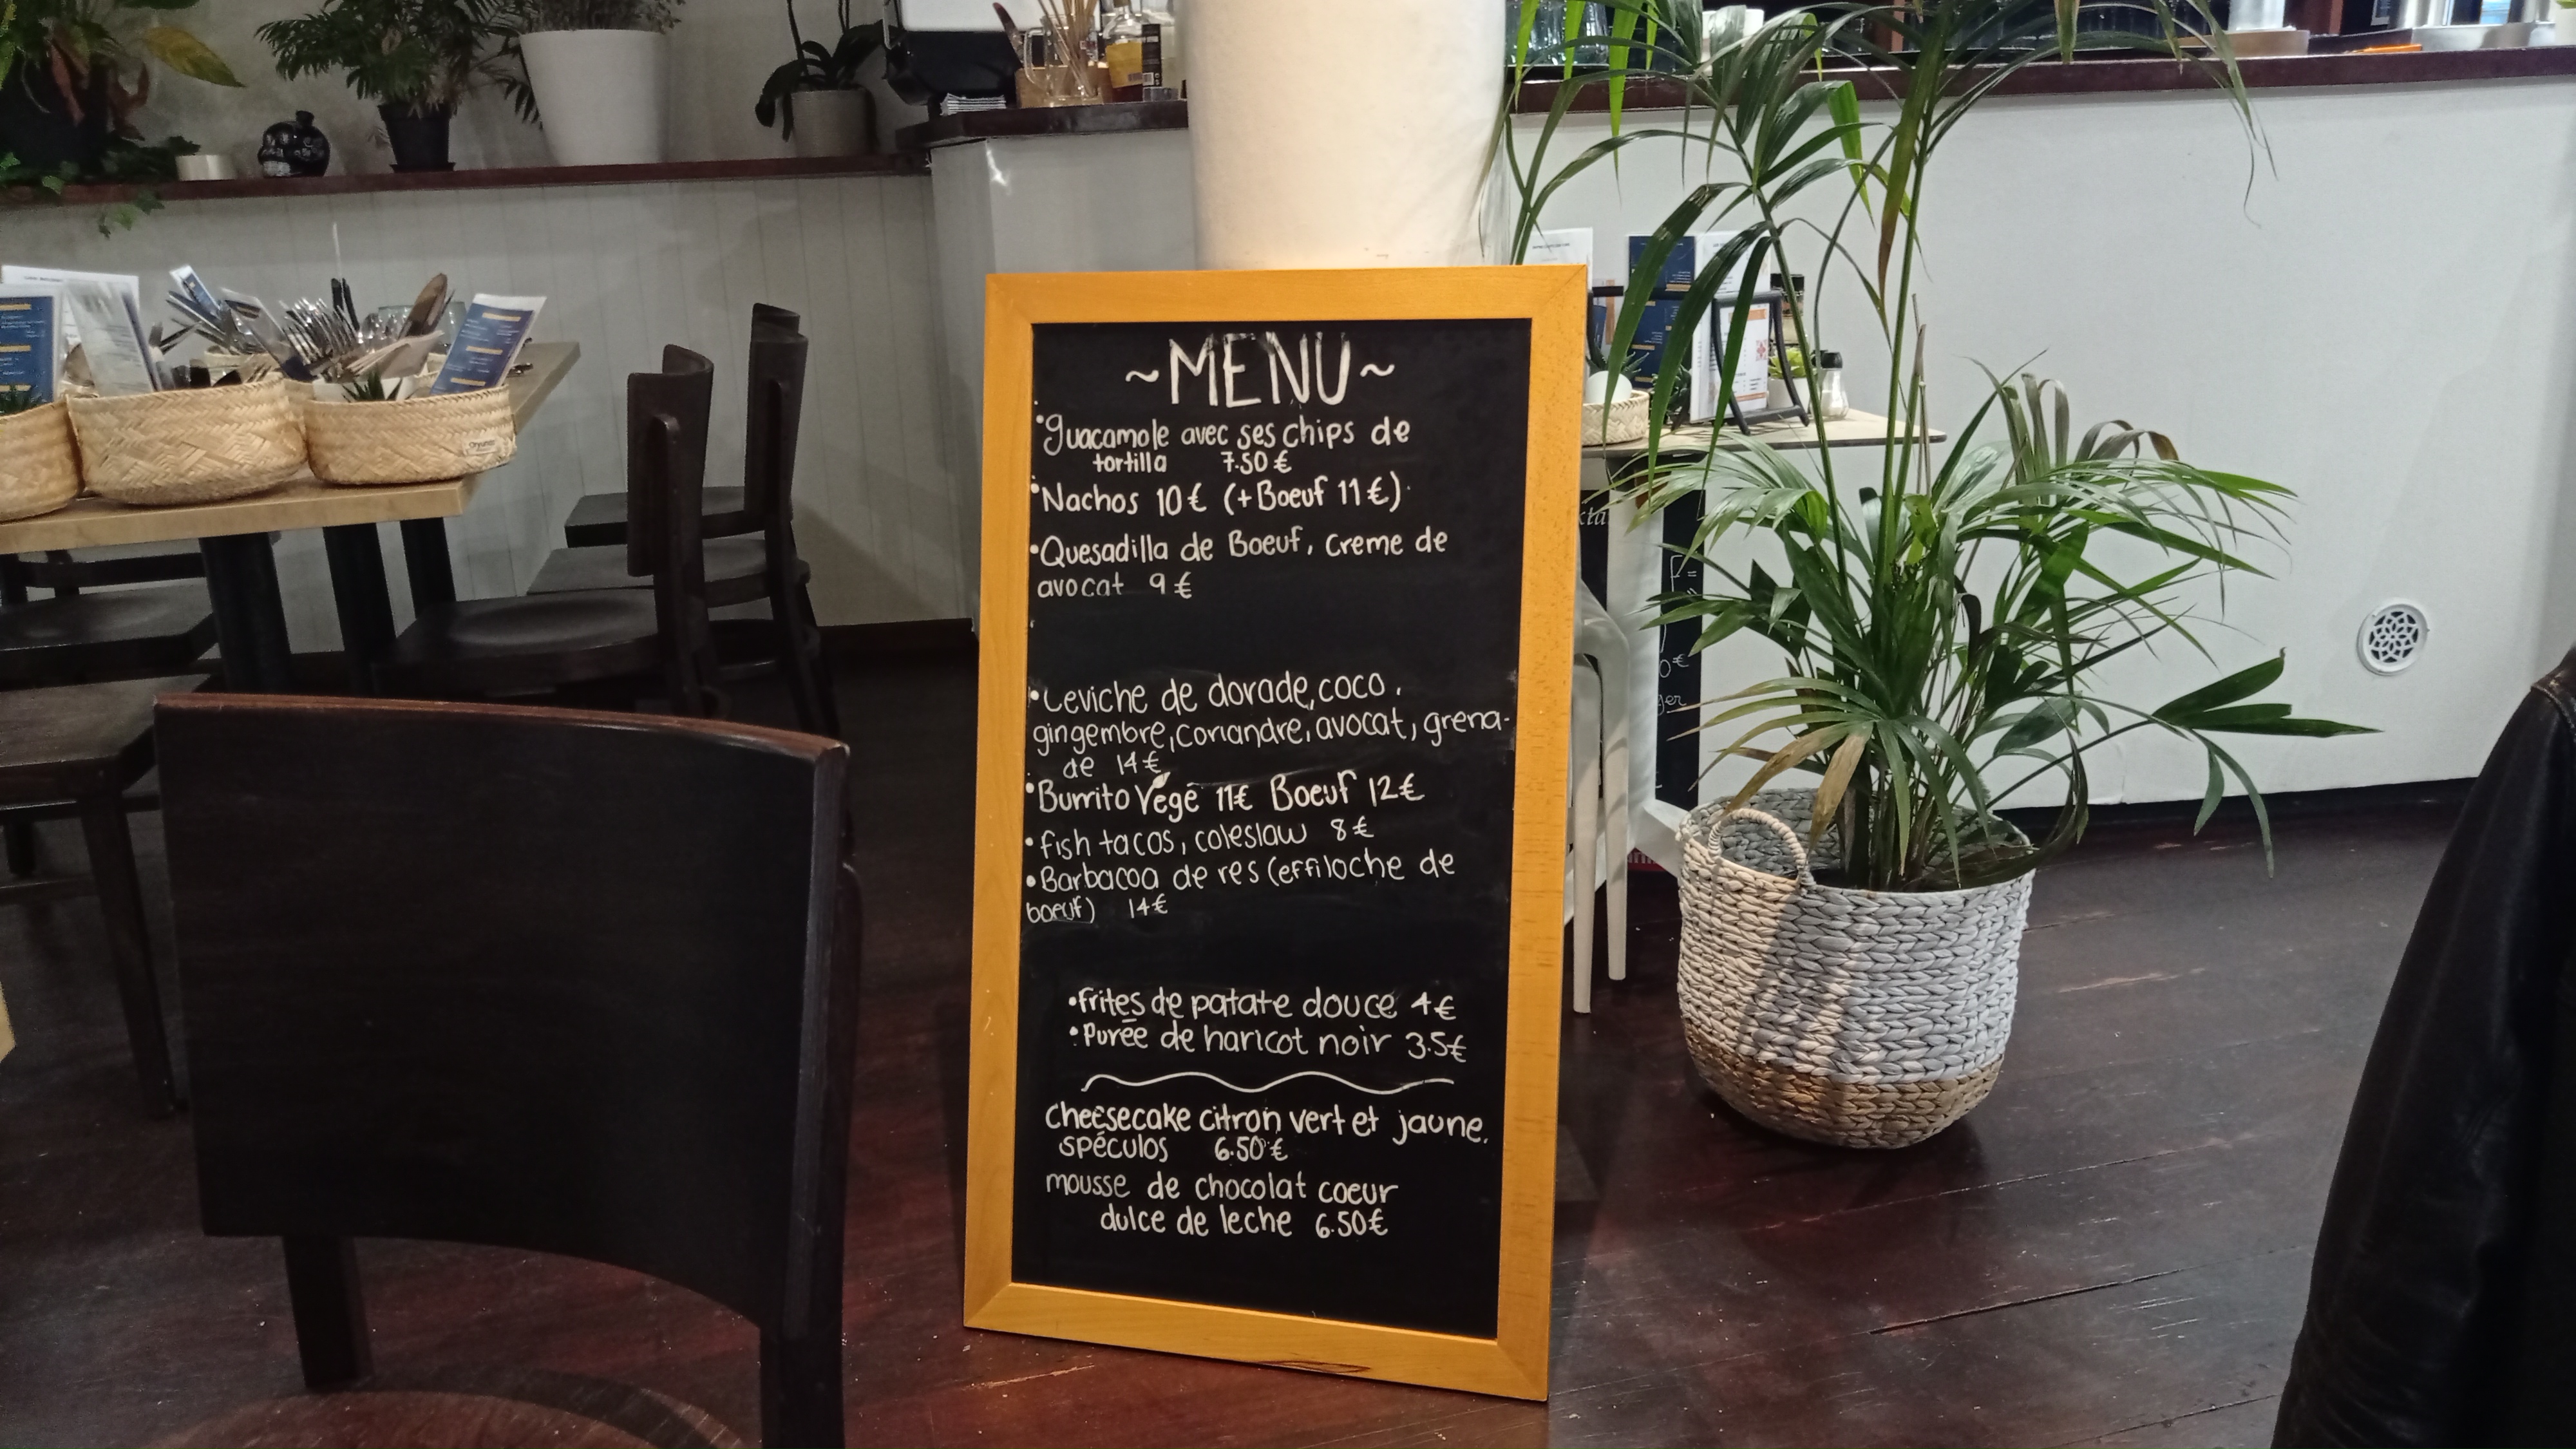 ~MENU~
•guacamole avec ses chips de
tortilla 7.50 €
•Nachos 10€ (+Boeuf 11€).
•Quesadilla de Boeuf, creme de
avocat 9 €
•Ceviche de dorade, coco,
gingembre, coriandre, avocat, grena-
de 14€
•Burrito Végé 11€ Boeuf 12€
•fish tacos, coleslaw 8€
•Barbacoa de res (effiloche de
boeuf) 14€
•frites de patate douce 4€
•Purée de haricot noir 3.5€
cheesecake citron vert et jaune.
spéculos 6.50€
mousse de chocolat coeur
dulce de leche 6.50€